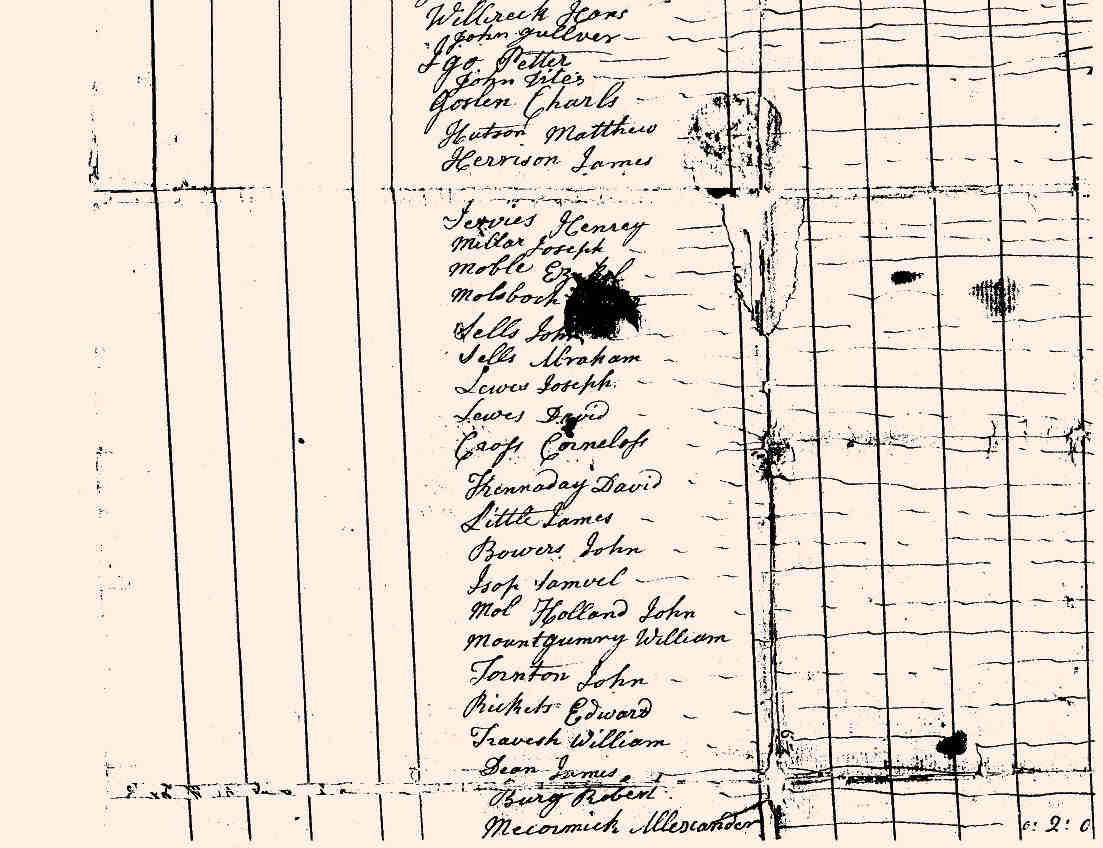 Willcreek Hans
John Gullver
Igo Petter
John Tites
Goslen Charls
Hutson Matthew
Herrison James
Jervies Henrey
Millar Joseph
Moble
Molsboch
Sells John
Sells Abraham
Lewis Joseph
Lewes David
Cross Corneloss
Kennaday David
Little James
Bowers John
Isop Samuel
Mol Holland John
Mountgumry William
Tornton John
Rickets Edward
Travesh William
Dean James
Burg Robert
Mecormick Allexander
0: 2: 0